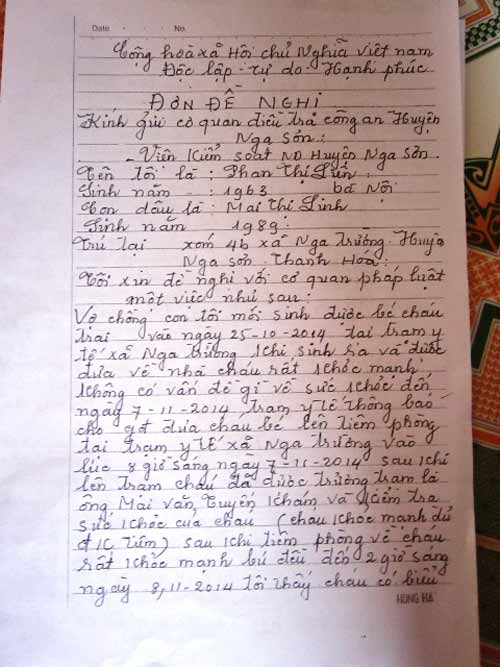 Date No.
Cộng hoà xã Hội chủ Nghĩa việt nam
Độc lập - tự do - Hạnh phúc
ĐƠN ĐỀ NGHỊ
Kính gửi cơ quan điều tra công an Huyện
Nga Sơn:
- Viện Kiểm soát ND Huyện Nga Sơn.
Tên tôi là : Phan Thị Lún.
Sinh năm - : 1963 bà Nội
Con dâu là : Mai Thị Linh
Sinh năm 1989:
Trú tại xóm 4b xã Nga Trường. Huyện
Nga sơn. Thanh Hóa:
Tôi xin đề nghị với cơ quan pháp luật
một việc như sau:
Vợ chồng con tôi mới sinh được bé cháu
trai vào ngày 25-10-2014 tại trạm y
tế xã Nga Trường khi sinh ra và được
đưa về nhà cháu rất khỏe mạnh,
không có vấn đề gì về sức khỏe đến
ngày 7-11-2014, trạm y tế thông báo
cho gđ đưa cháu bé lên tiêm phòng
tại trạm y tế xã Nga Trường vào
lúc 8 giờ sáng ngày 7-11-2014 sau khi
lên trạm cháu đã được trưởng trạm là
ông Mai văn Truyền khám và kiểm tra
sức khỏe của cháu (cháu khỏe mạnh đủ
đk tiêm) sau khi tiêm phòng về cháu
rất khỏe mạnh bú đều đến 2 giờ sáng
ngày 8,11-2014 tôi thấy cháu có biểu
HONG HA